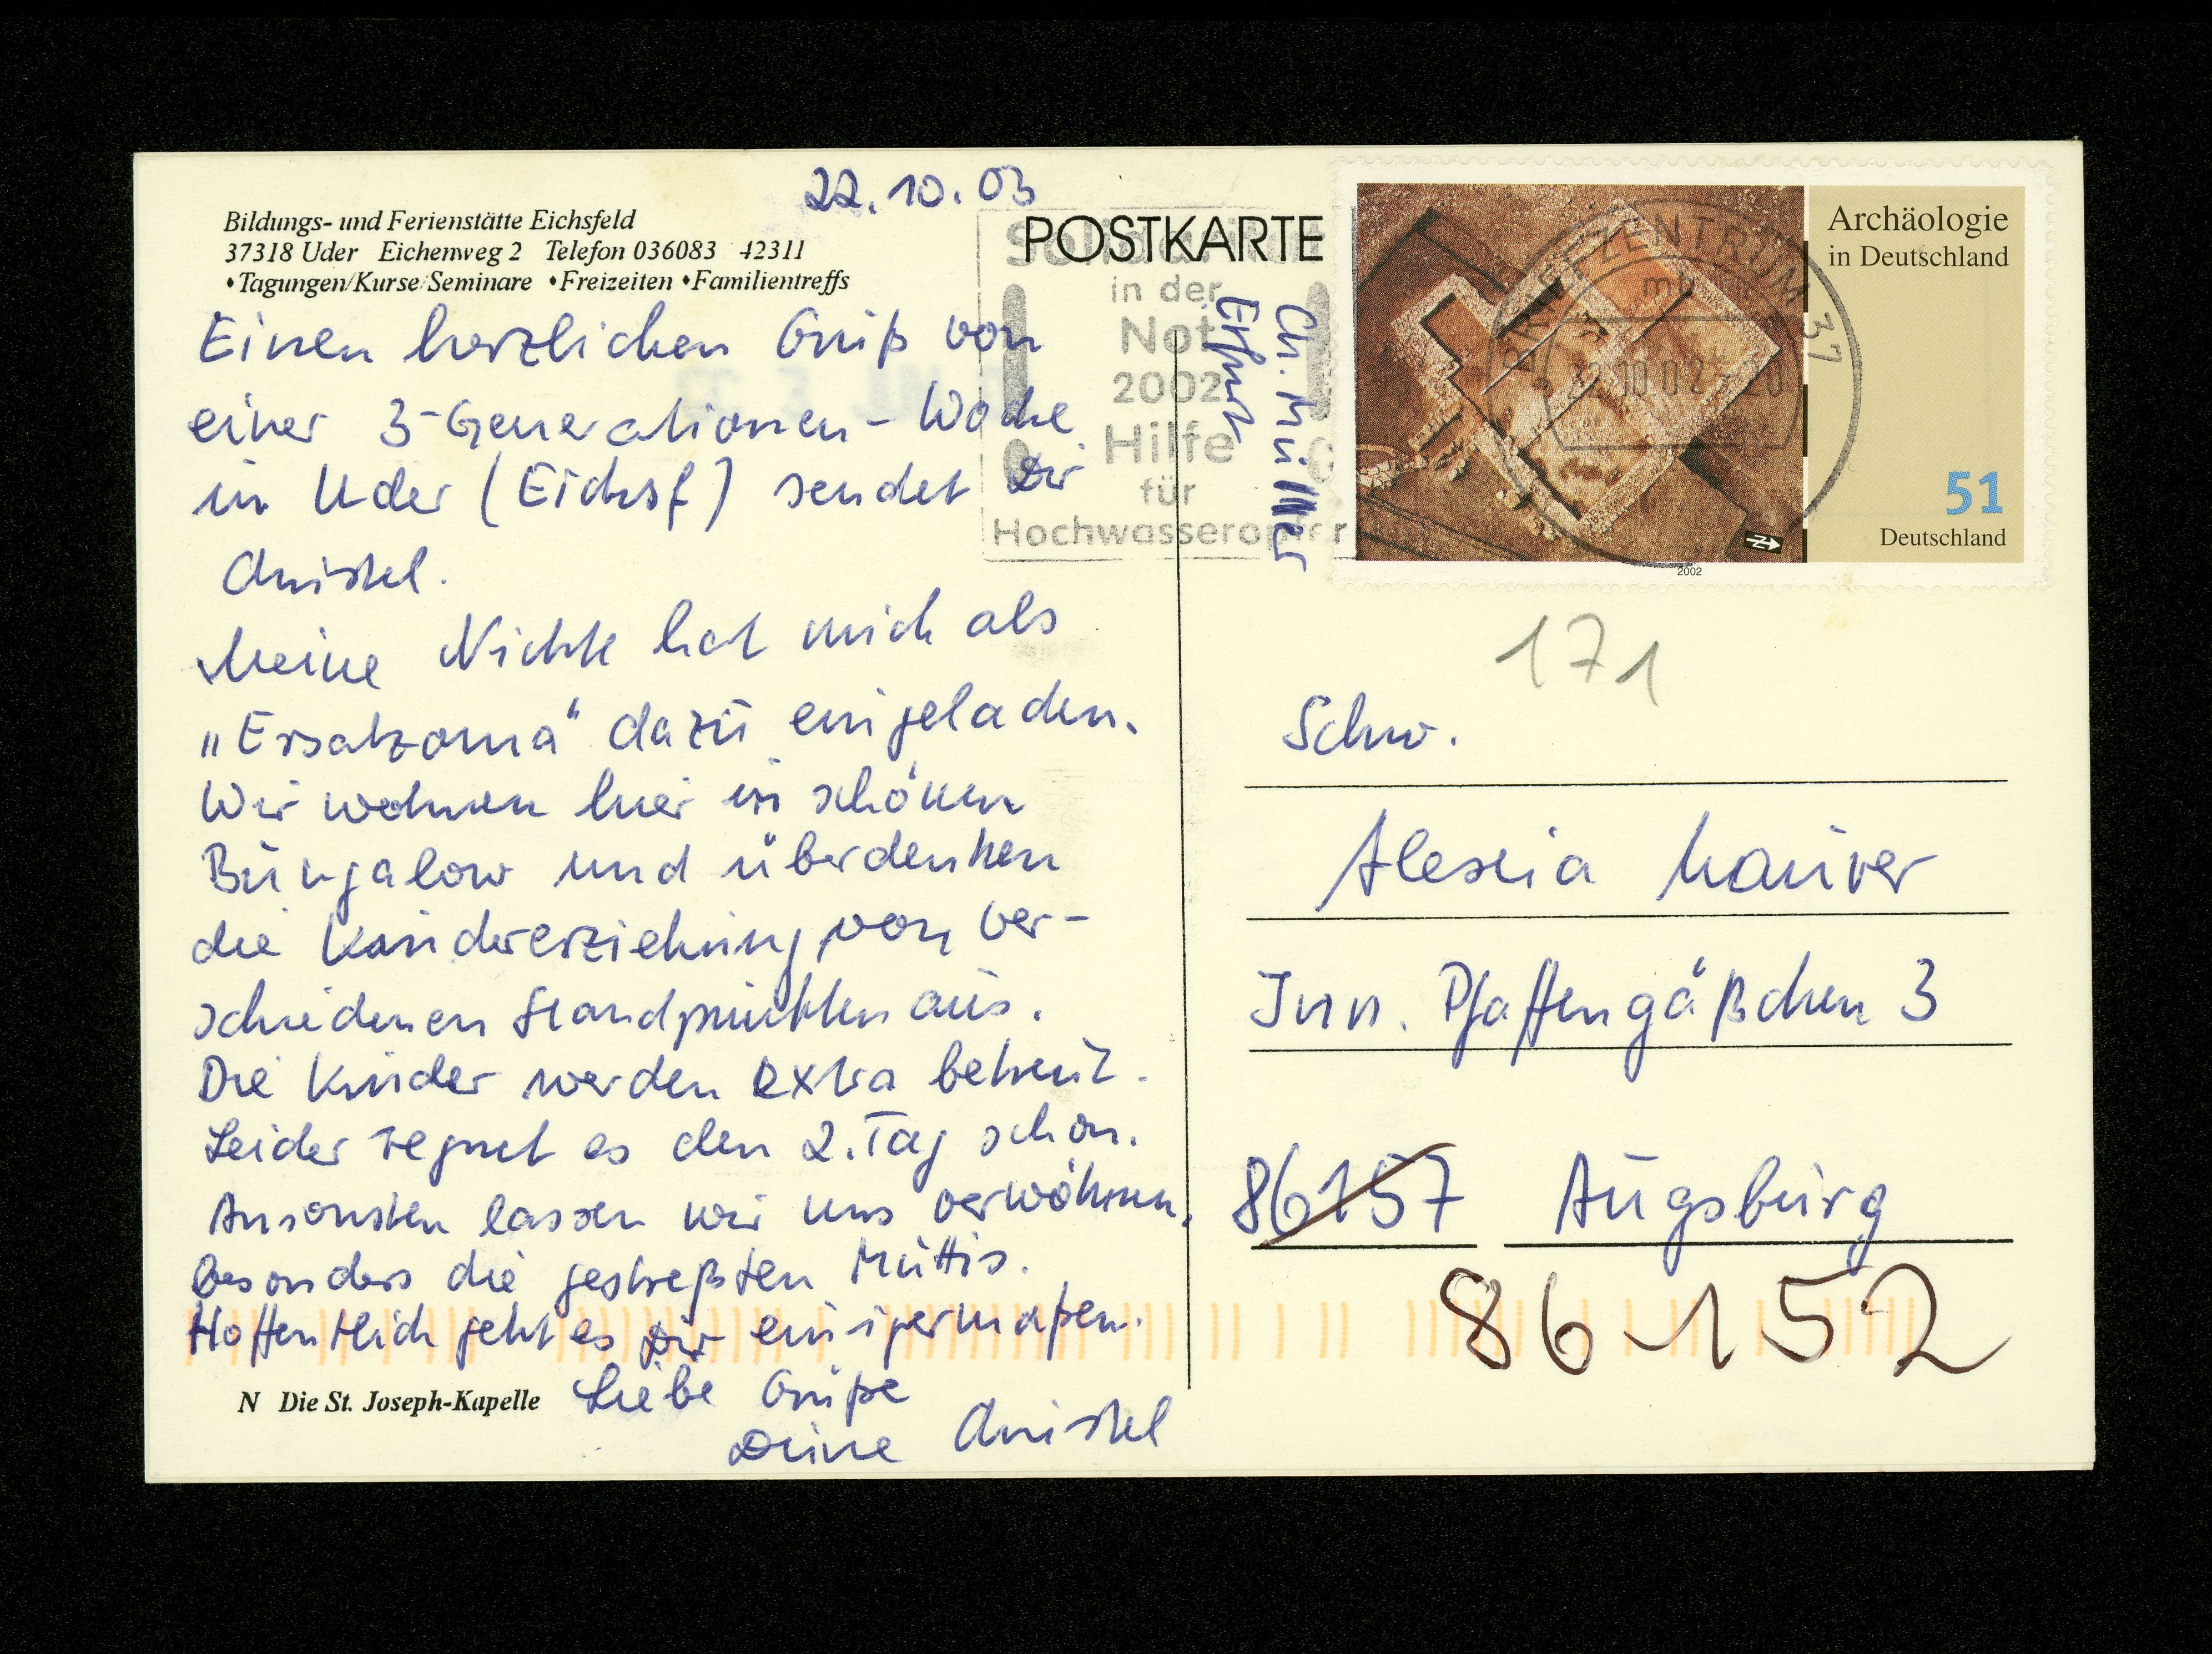 22.10.03
Bildungs- und Ferienstätte Eichsfeld
37318 Uder Eichenweg 2 Telefon 036083 42311
•Tagungen/Kurse/Seminare •Freizeiten •Familientreffs
Einen herzlichen Gruß von
einer 3-Generationen-Woche
in Uder (Eichsf) sendet Dir
Christel.
Meine Nichte hat mich als
„Ersatzoma“ dazu eingeladen.
Wir wohnen hier im schönen
Bungalow und überdenken
die Kindererziehung von ver-
schiedenen Standpunkten aus.
Die Kinder werden extra betreut.
Leider regnet es den 2. Tag schon.
Ansonsten lassen wir uns verwöhnen,
besonders die gestreßten Muttis.
Hoffentlich geht es Dir einigermaßen.
Liebe Grüße
Deine Christel
N Die St. Joseph-Kapelle
POSTKARTE
in der
Not
2002
Hilfe
für
Hochwasseropfer
Ch. Müller
Erfurt
BRIEFZENTRUM 37
mb
22.10.02 - 20
Archäologie
in Deutschland
51
Deutschland
2002
171
Schw.
Alexia Maurer
Inn. Pfaffengäßchen 3
86157 Augsburg
86152